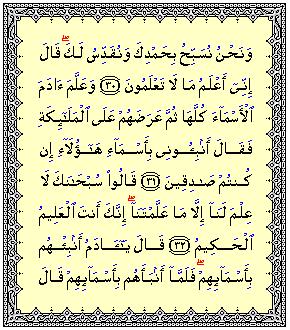 وَنَحْنُ نُسَبِّحُ بِحَمْدِكَ وَنُقَدِّسُ لَكَۖ قَالَ
إِنِّىٓ أَعْلَمُ مَا لَا تَعْلَمُونَ ٣٠ وَعَلَّمَ ءَادَمَ
ٱلْأَسْمَآءَ كُلَّهَا ثُمَّ عَرَضَهُمْ عَلَى ٱلْمَلَـٰٓئِكَةِ
فَقَالَ أَنۢبِـُٔونِى بِأَسْمَآءِ هَـٰٓؤُلَآءِ إِن
كُنتُمْ صَـٰدِقِينَ ٣١ قَالُوا۟ سُبْحَـٰنَكَ لَا
عِلْمَ لَنَآ إِلَّا مَا عَلَّمْتَنَآۖ إِنَّكَ أَنتَ ٱلْعَلِيمُ
ٱلْحَكِيمُ ٣٢ قَالَ يَـٰٓـَٔادَمُ أَنۢبِئْهُم
بِأَسْمَآئِهِمْۖ فَلَمَّآ أَنۢبَأَهُم بِأَسْمَآئِهِمْ قَالَ